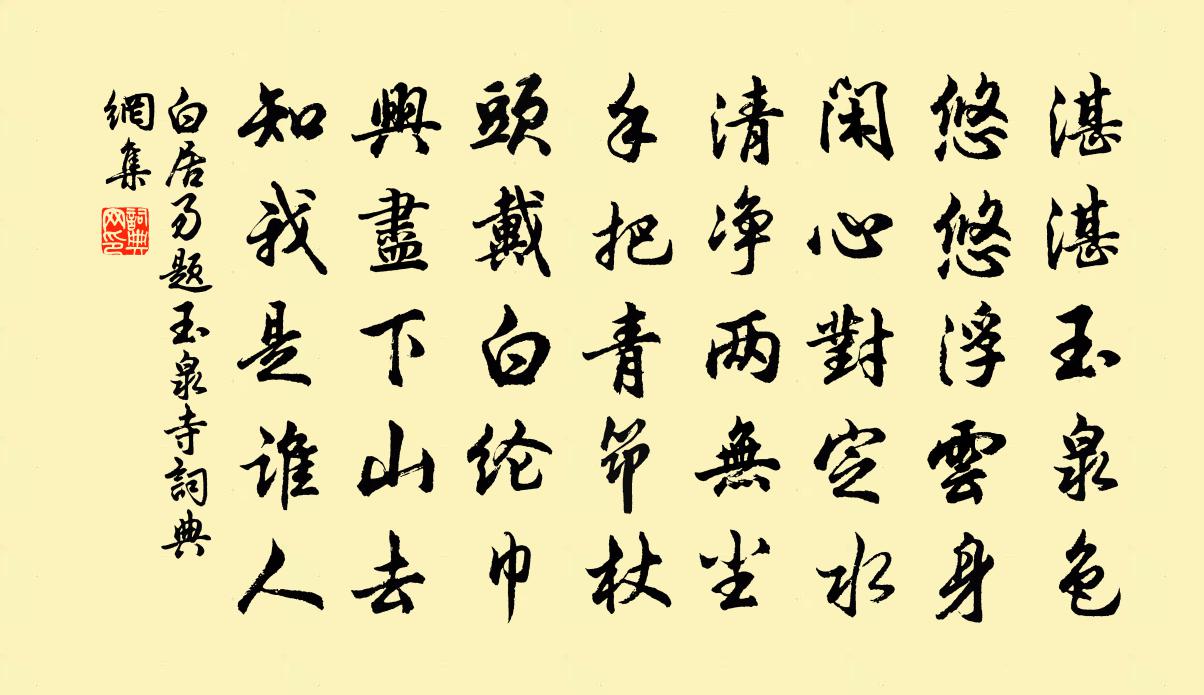 湛湛玉泉色
悠悠浮雲身
閑心對定水
清净两無尘
手把青筇杖
頭戴白纶巾
興盡下山去
知我是谁人
白居易題玉泉寺詞典
網集
詞典网印